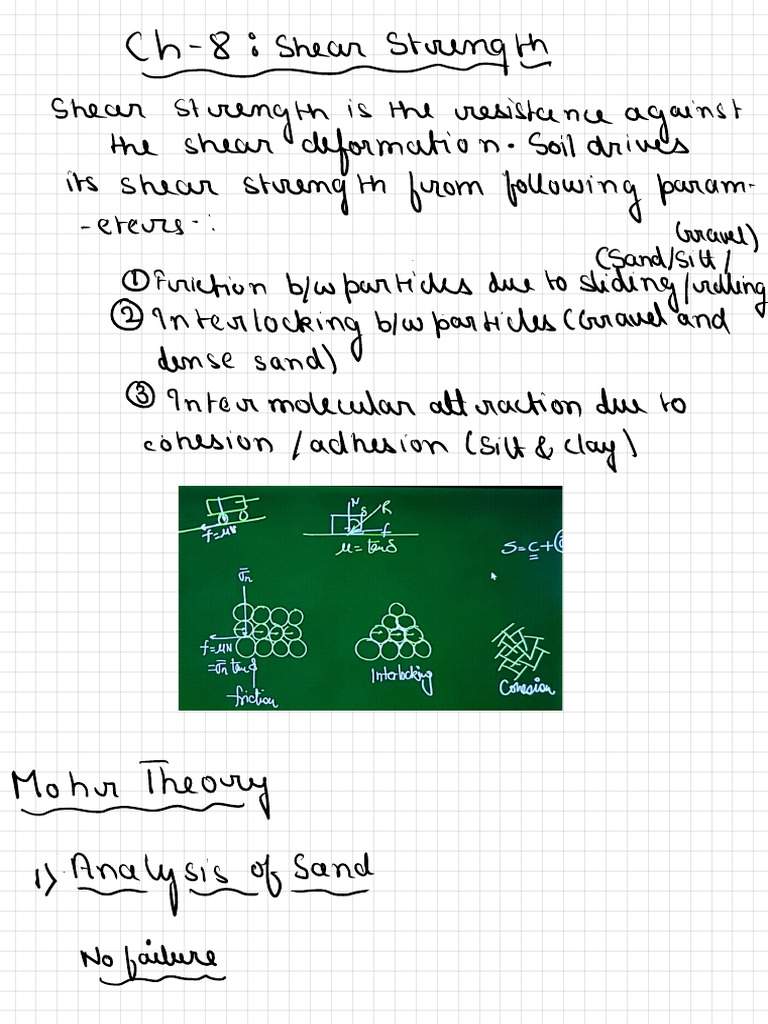 Ch-8 : Shear Strength
Shear strength is the resistance against
the shear deformation. Soil drives
its shear strength from following param-
-eters -:
① Friction b/w particles due to sliding/rolling
(Sand/silt/
Gravel)
② Interlocking b/w particles (Gravel and
dense sand)
③ Inter molecular attraction due to
cohesion / adhesion (Silt & clay)
f=μN
N
δ
R
f
μ=tanδ
S=C+
σ̅n
f=μN
=σ̅n tanδ
friction
Interlocking
Cohesion
Mohr Theory
1) Analysis of Sand
No failure